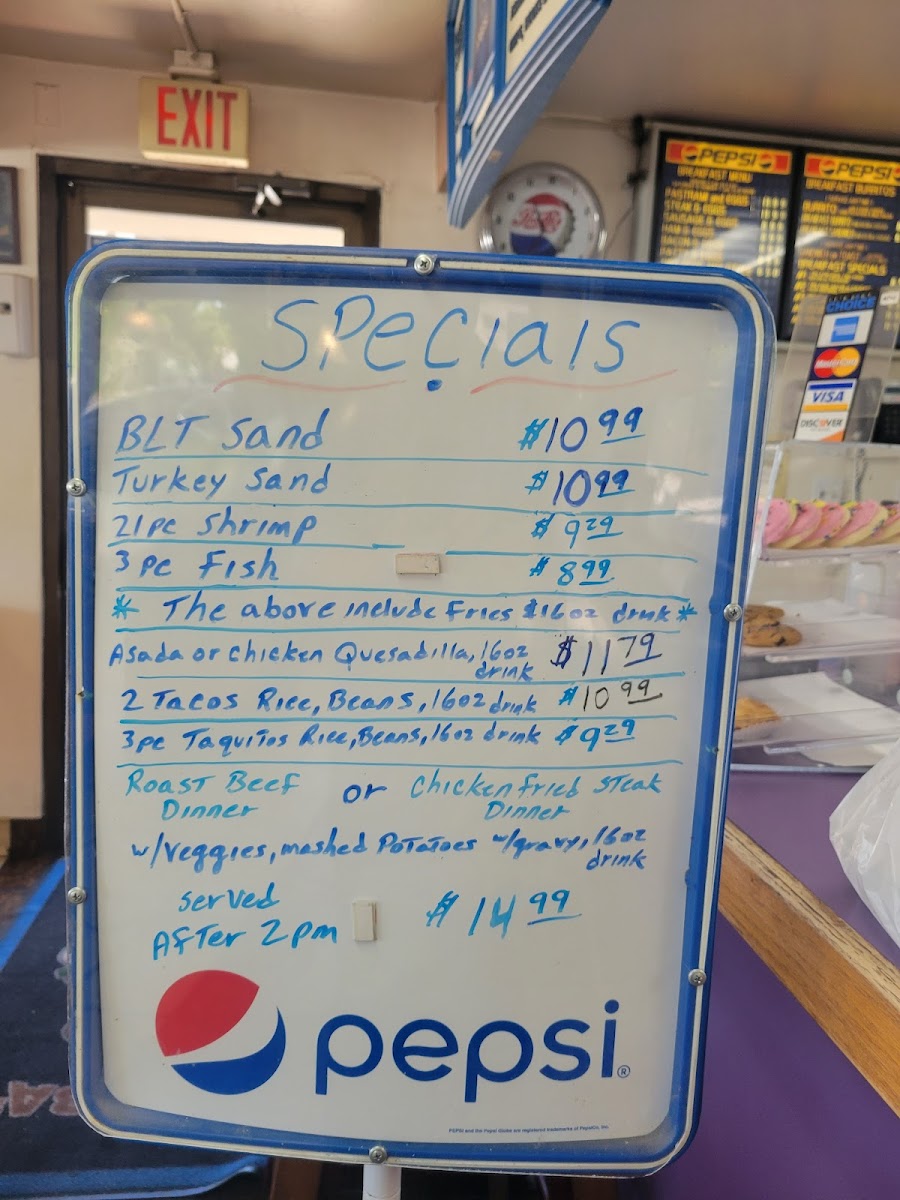 EXIT
PEPSI
BREAKFAST MENU
PASTRAMI and EGGS
STEAK & EGGS
PEPSI
BREAKFAST BURRITOS
BREAKFAST SPECIALS
CHOICE
MasterCard
VISA
DISCOVER
SPecials
BLT Sand $10.99
Turkey Sand $10.99
21pc Shrimp $9.29
3 pc Fish $8.99
* The above include Fries $16oz drink *
Asada or Chicken Quesadilla, 16oz drink $11.79
2 Tacos Rice, Beans, 16oz drink $10.99
3pc Taquitos Rice, Beans, 16oz drink $9.29
Roast Beef Dinner or Chicken fried Steak Dinner
w/veggies, mashed Potatoes w/gravy, 16oz drink
Served
After 2pm $14.99
pepsi®
PEPSI and the Pepsi Globe are registered trademarks of PepsiCo, Inc.